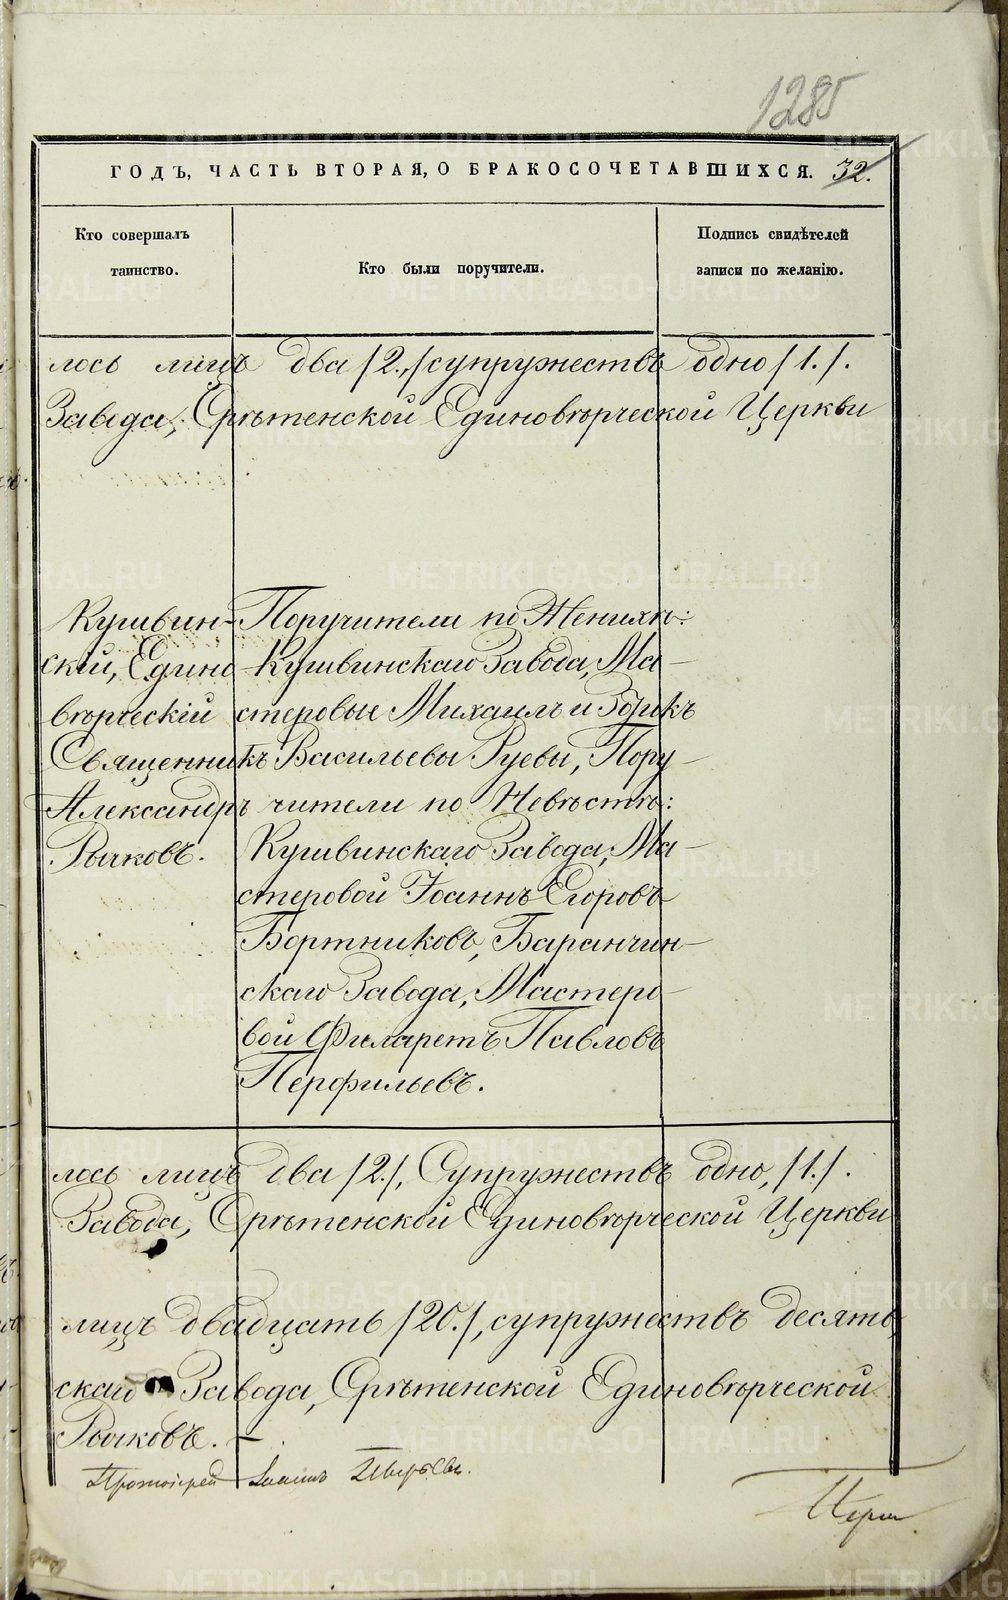 1285
ГОДЪ, ЧАСТЬ ВТОРАЯ, О БРАКОСОЧЕТАВШИХСЯ. 32.
Кто совершалъ таинство.
Кто были поручители.
Подпись свидѣтелей записи по желанію.
лось лицъ два /2./, супружествъ одно /1./.
Завода, Срѣтенской Единовѣрческой Церкви
Кушвин-
скій, Едино
вѣрческій
Священникъ
Александръ
Рычковъ.
Поручители по Женихѣ:
Кушвинскаго Завода, Ма-
стеровые Михаилъ и
Васильевы Руевы, Пору-
чители по Невѣстѣ:
Кушвинскаго Завода, Ма-
стеровой Іоаннъ Егоровъ
Бортниковъ, Баранчин-
скаго Завода, Мастеро-
вой Филаретъ Павловъ
Перфильевъ.
лось лицъ два /2./, Супружествъ одно, /1./.
Завода, Срѣтенской Единовѣрческой Церкви
лицъ двадцать /20./, супружествъ десять
скаго Завода, Срѣтенской Единовѣрческой
Рычковъ. —
Протоіерей Іоаннъ
METRIKI.GASO-URAL.RU